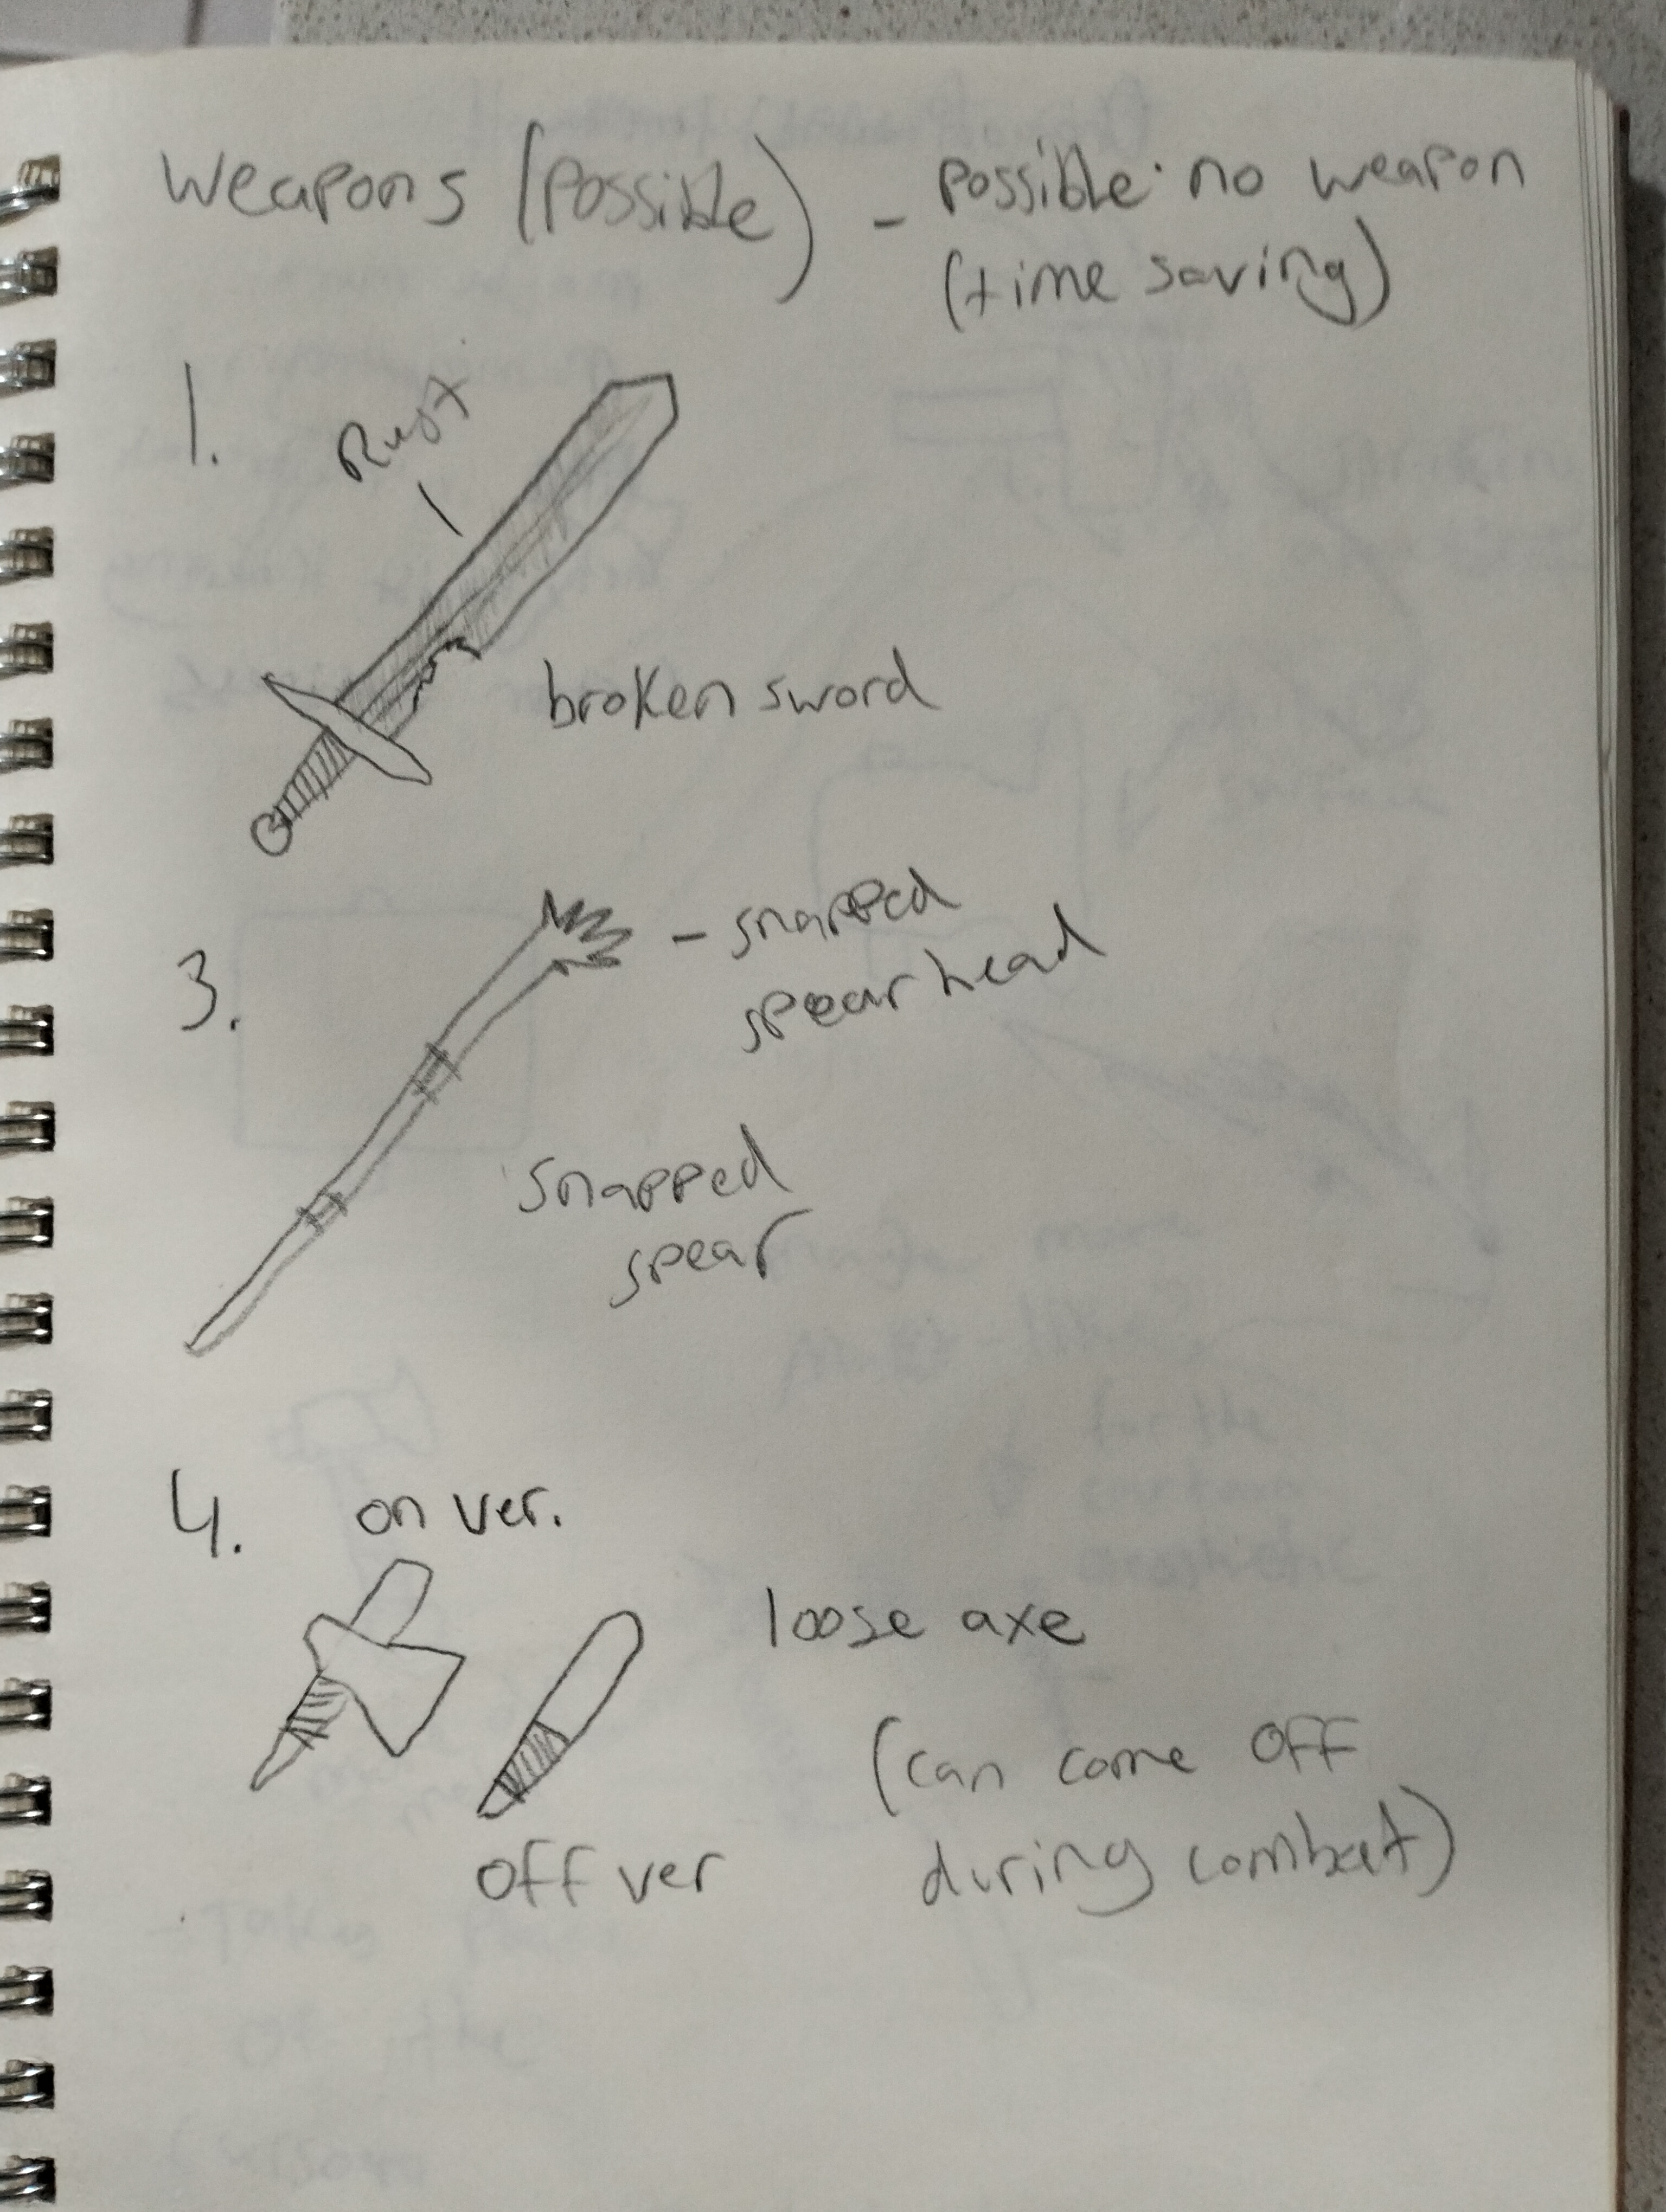 Weapons (possible) - possible: no weapon
(time saving)
1.
Rust
broken sword
3.
- snapped
spear head
snapped
spear
4. on ver.
loose axe
(can come off
during combat)
off ver